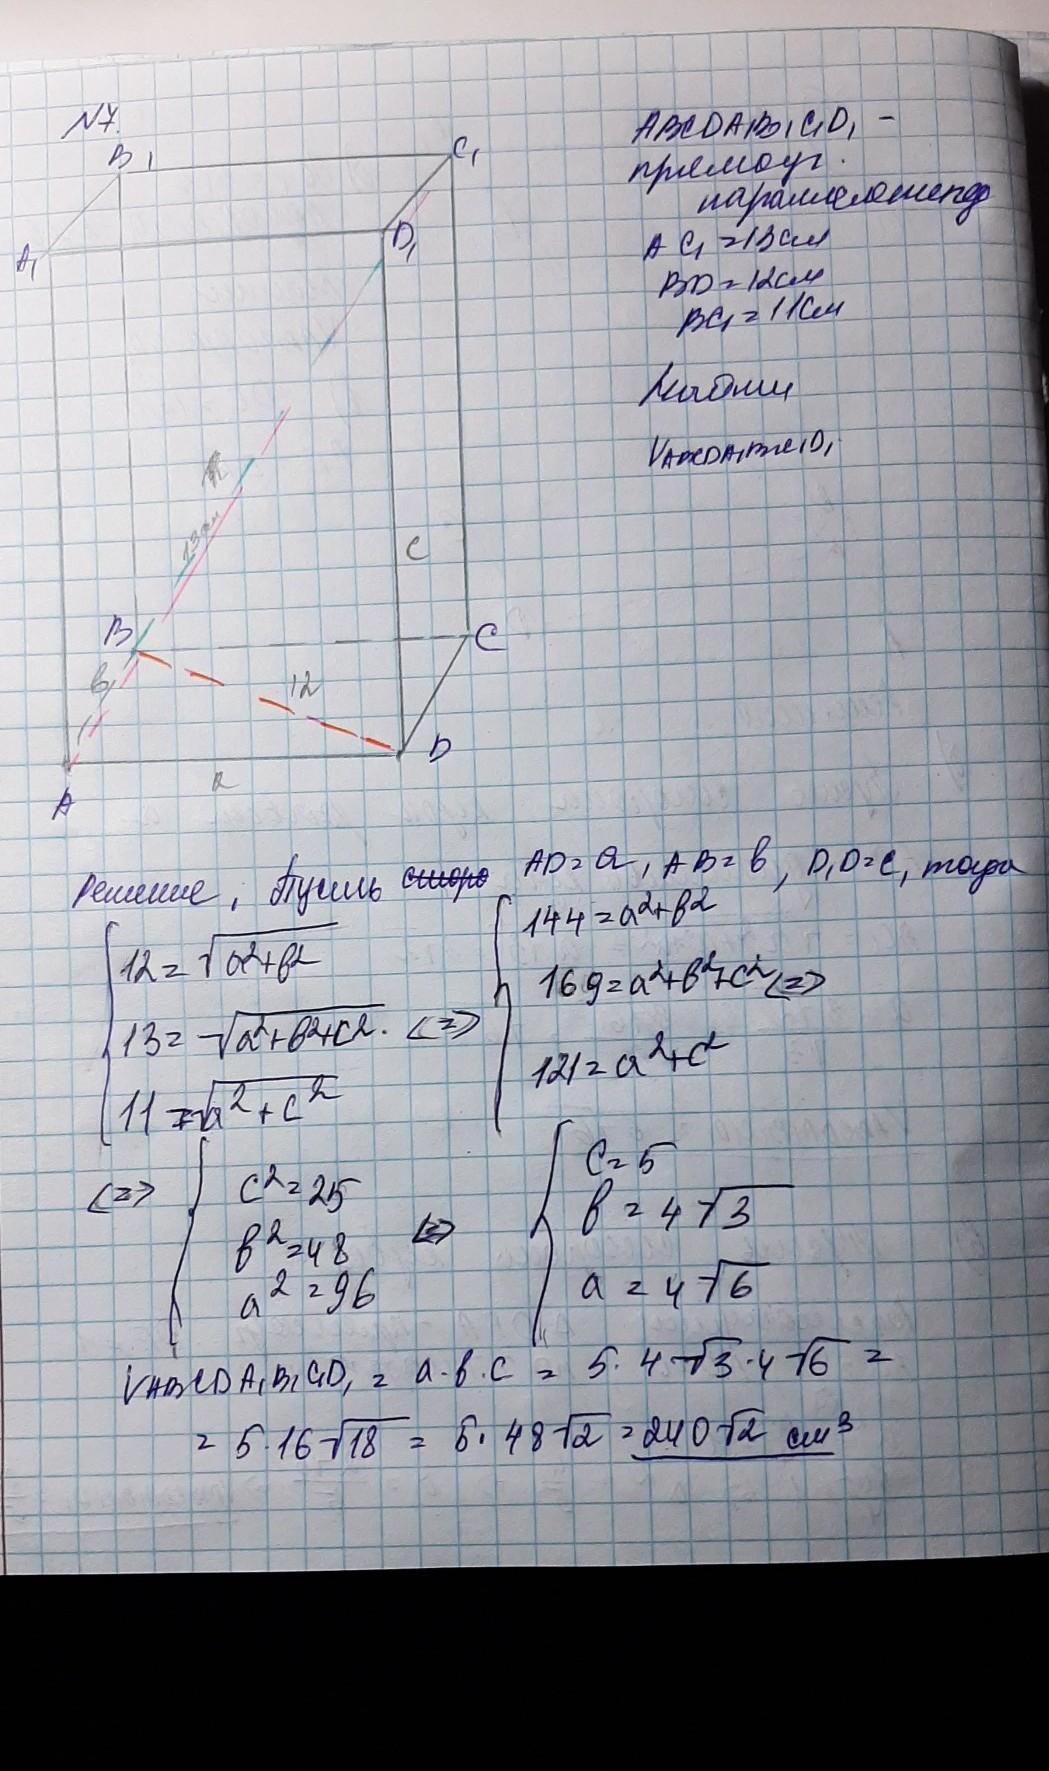 N7.
B₁
C₁
A₁
D₁
13см
C
B
C
b
12
D
a
A
ABCDA₁B₁C₁D₁ -
прямоуг.
параллелепипед
AC₁ = 13см
BD = 12см
BC₁ = 11см
Найти
VABCDA₁B₁C₁D₁
Решение, Пусть AD = a, AB = b, D₁D = c, тогда
12 = √a²+b²
13 = √a²+b²+c². <=>
11 = √a²+c²
144 = a²+b²
169 = a²+b²+c² <=>
121 = a²+c²
<=>
c² = 25
b² = 48
a² = 96
<=>
c = 5
b = 4√3
a = 4√6
VABCDA₁B₁C₁D₁ = a·b·c = 5·4√3·4√6 =
= 5·16√18 = 5·48√2 = 240√2 см³